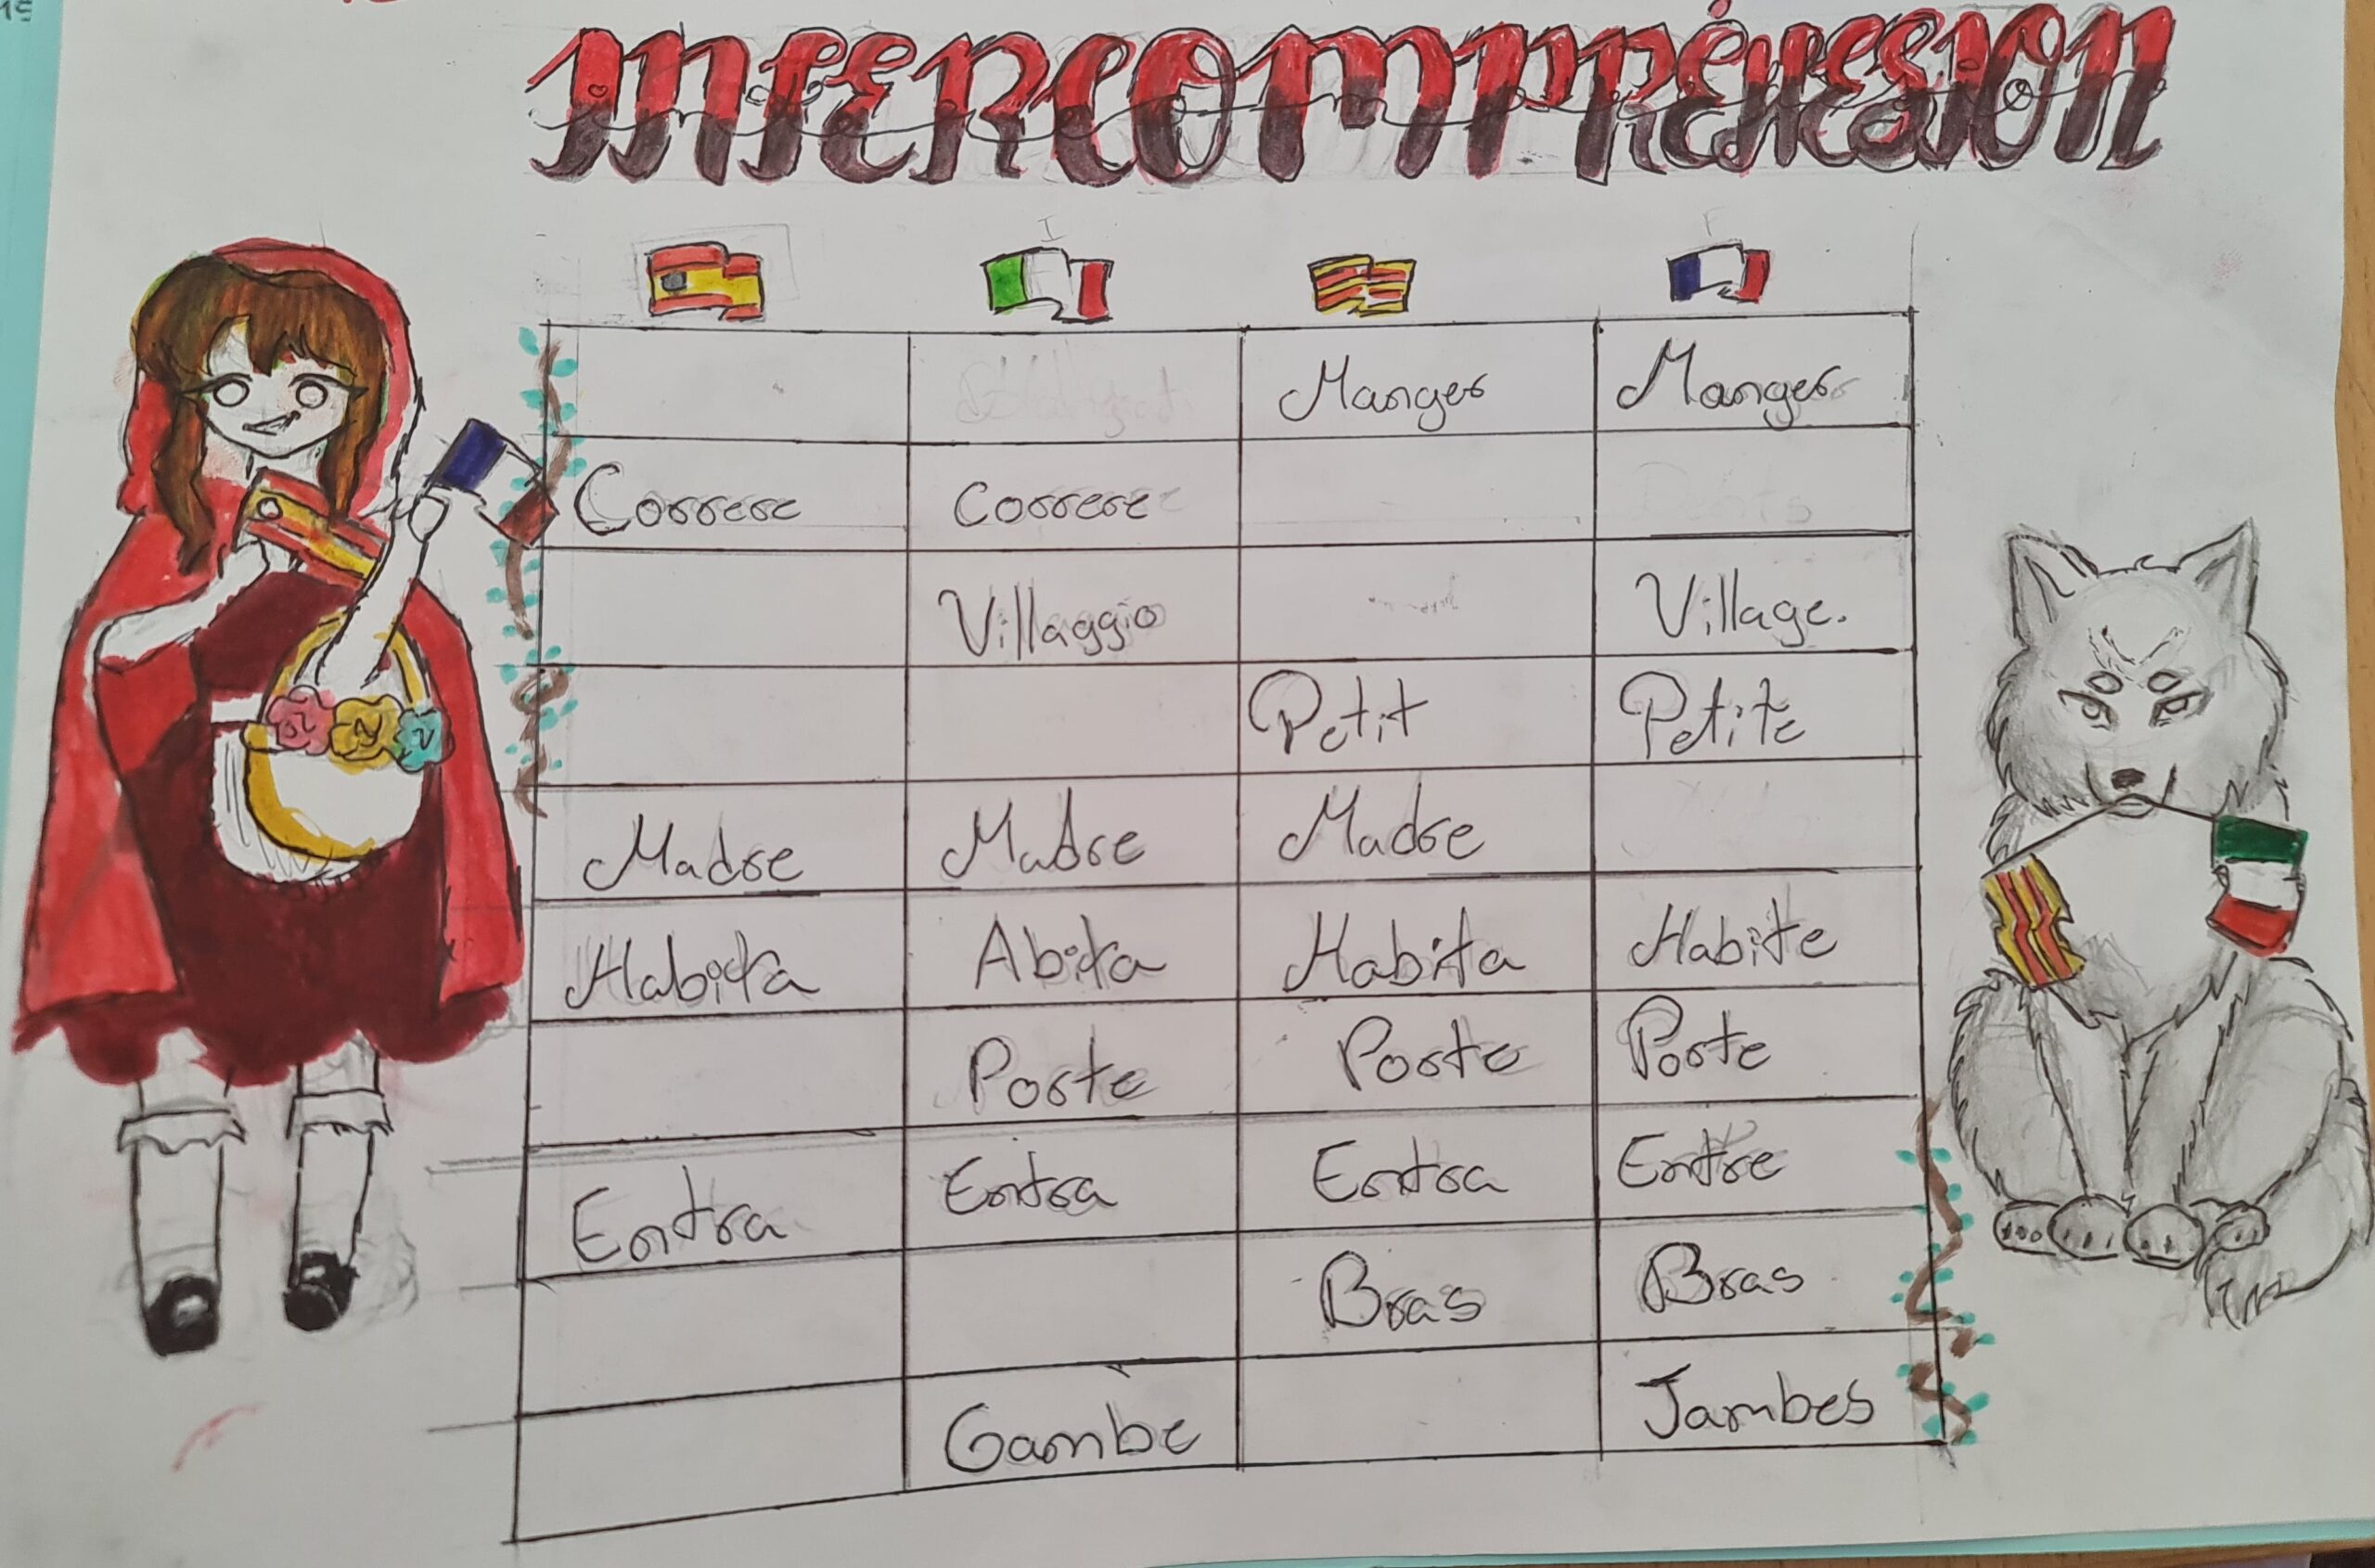 INTERCOMPRÉHESION
I F
Manger Manger
Correre Correre
Villaggio Village.
Petit Petite
Madre Madre Madre
Habita Abita Habita Habite
Porte Porte Porte
Entra Entra Entra Entre
Bras Bras
Gambe Jambes